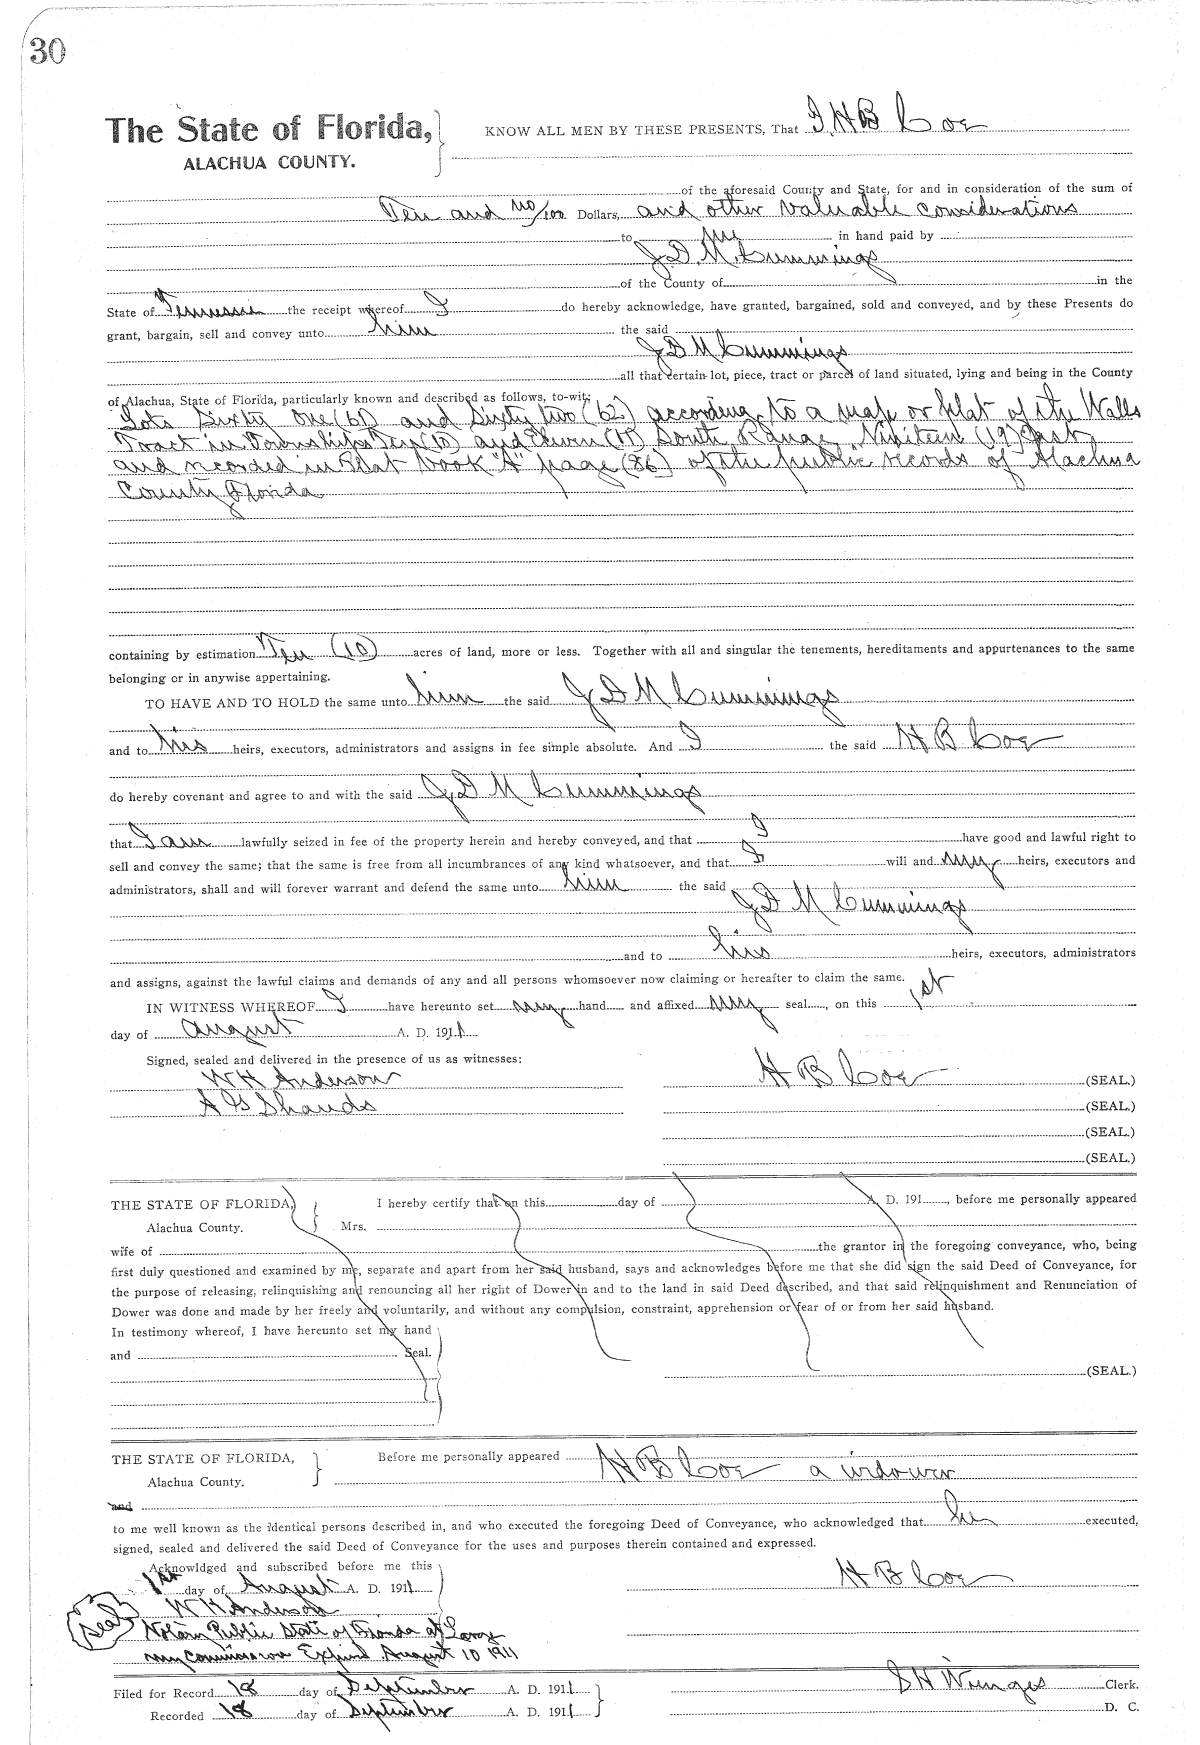 30
The State of Florida, KNOW ALL MEN BY THESE PRESENTS, That I, H B Coe
ALACHUA COUNTY.
of the aforesaid County and State, for and in consideration of the sum of
Ten and no/100 Dollars, and other valuable considerations
to me in hand paid by
J D M Cummings
of the County of in the
State of Tennessee the receipt whereof I do hereby acknowledge, have granted, bargained, sold and conveyed, and by these Presents do
grant, bargain, sell and convey unto him the said
J D M Cummings
all that certain lot, piece, tract or parcel of land situated, lying and being in the County
of Alachua, State of Florida, particularly known and described as follows, to-wit:
Lots Sixty One (61) and Sixty two (62) according to a map or plat of the Walls
Tract in Townships Ten (10) and South Range Nineteen (19) East
and recorded in Plat book "A" page (86) of the public records of Alachua
County Florida
containing by estimation Ten (10) acres of land, more or less. Together with all and singular the tenements, hereditaments and appurtenances to the same
belonging or in anywise appertaining.
TO HAVE AND TO HOLD the same unto him the said J D M Cummings
and to his heirs, executors, administrators and assigns in fee simple absolute. And I the said H B Coe
do hereby covenant and agree to and with the said J D M Cummings
that I am lawfully seized in fee of the property herein and hereby conveyed, and that I have good and lawful right to
sell and convey the same; that the same is free from all incumbrances of any kind whatsoever, and that I will and my heirs, executors and
administrators, shall and will forever warrant and defend the same unto him the said
J D M Cummings
and to his heirs, executors, administrators
and assigns, against the lawful claims and demands of any and all persons whomsoever now claiming or hereafter to claim the same.
IN WITNESS WHEREOF I have hereunto set my hand and affixed my seal, on this 1st
day of August A. D. 1911
Signed, sealed and delivered in the presence of us as witnesses:
W H Anderson H B Coe (SEAL.)
A G Shands (SEAL.)
(SEAL.)
(SEAL.)
THE STATE OF FLORIDA, I hereby certify that on this day of A. D. 191 , before me personally appeared
Alachua County. Mrs.
wife of the grantor in the foregoing conveyance, who, being
first duly questioned and examined by me, separate and apart from her said husband, says and acknowledges before me that she did sign the said Deed of Conveyance, for
the purpose of releasing, relinquishing and renouncing all her right of Dower in and to the land in said Deed described, and that said relinquishment and Renunciation of
Dower was done and made by her freely and voluntarily, and without any compulsion, constraint, apprehension or fear of or from her said husband.
In testimony whereof, I have hereunto set my hand
and Seal.
(SEAL.)
THE STATE OF FLORIDA, Before me personally appeared H B Coe a widower
Alachua County.
and
to me well known as the identical persons described in, and who executed the foregoing Deed of Conveyance, who acknowledged that he executed,
signed, sealed and delivered the said Deed of Conveyance for the uses and purposes therein contained and expressed.
Acknowldged and subscribed before me this
1st day of August A. D. 1911 H B Coe
W H Anderson
Seal Notary Public State of Florida at Large
my Commission Expires August 10 1911
Filed for Record 18 day of September A. D. 1911 S H Wienges Clerk.
Recorded 18 day of September A. D. 1911 D. C.